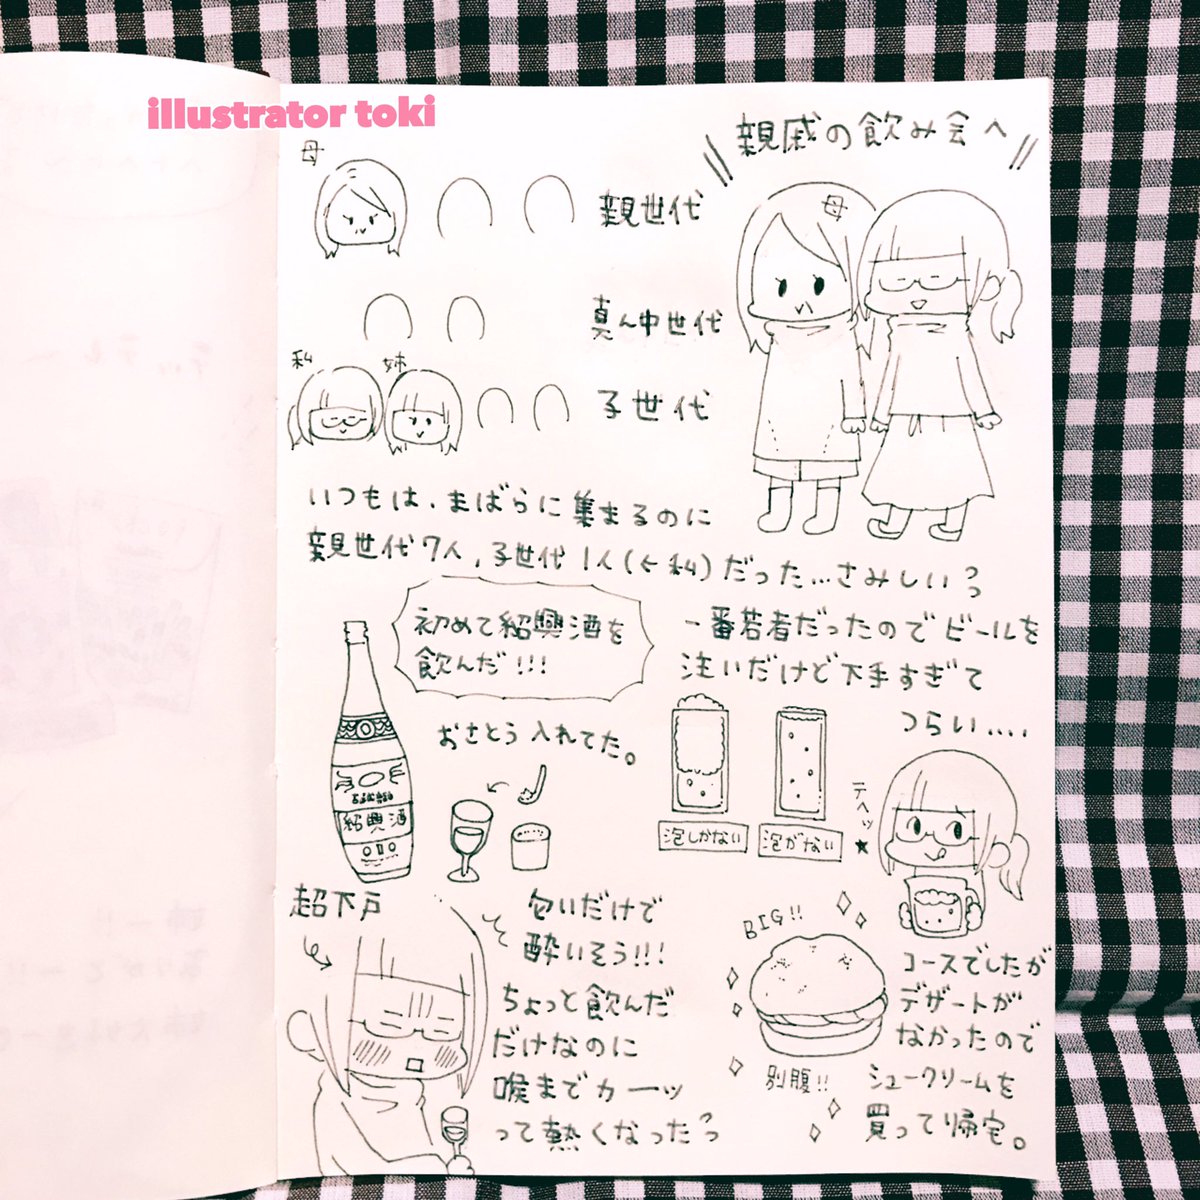 illustrator toki
親戚の飲み会へ
母
母
親世代
真ん中世代
私
姉
子世代
いつもは、まばらに集まるのに
親世代7人、子世代1人(←私)だった…さみしい
初めて紹興酒を
飲んだ!!!
おさとう入れてた。
紹興酒
一番若者だったのでビールを
注いだけど下手すぎて
つらい….
泡しかない
泡がない
テヘッ
★
超下戸
匂いだけで
酔いそう!!!
ちょっと飲んだ
だけなのに
喉までカーッ
って熱くなった
BIG!!
別腹!!
コースでしたが
デザートが
なかったので
シュークリームを
買って帰宅。